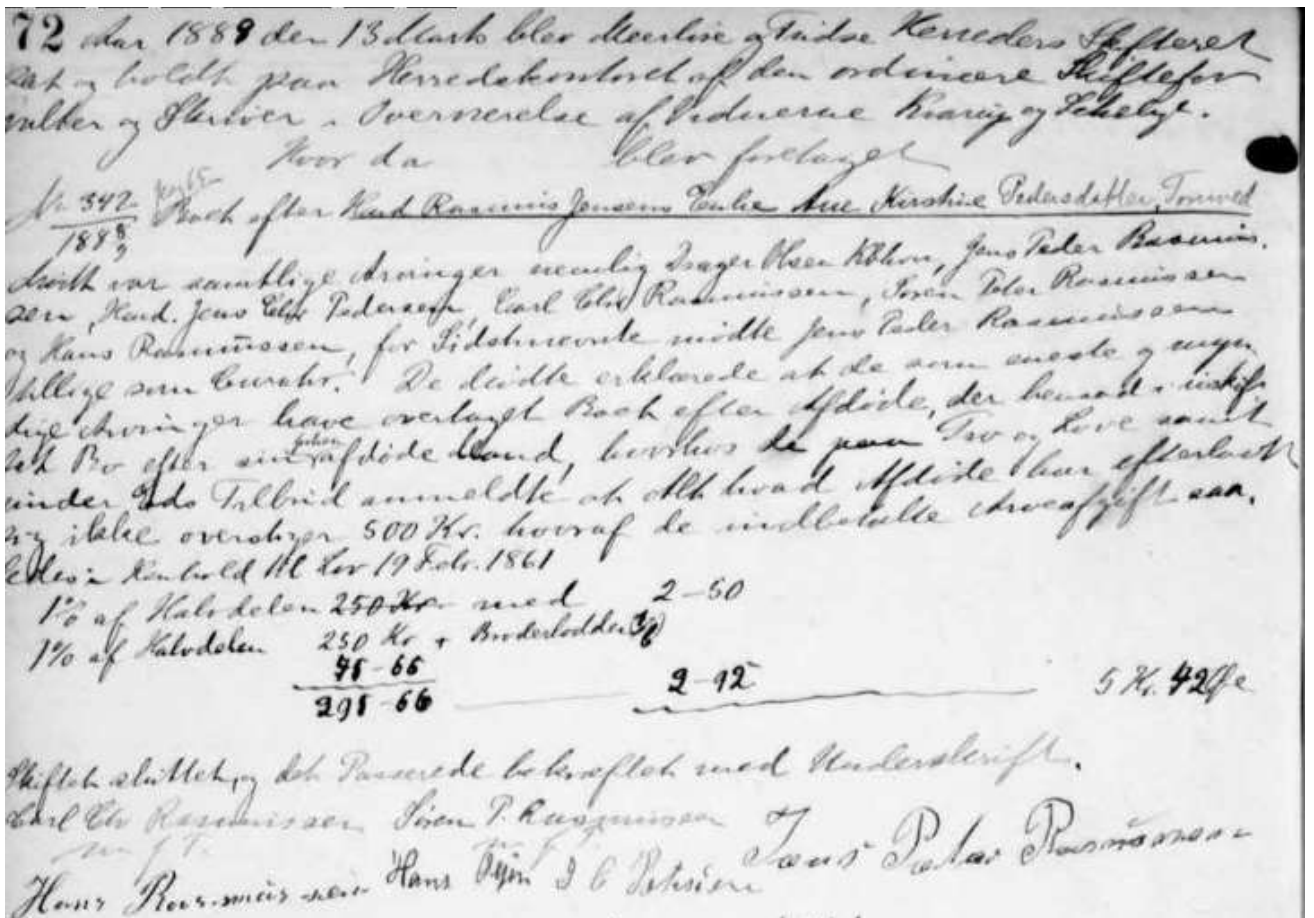 72 Aar 1889 den 13 Marts blev Merløse og Tudse Herreders Skifteret
sat og holdt paa Herredskontoret af den ordinære Skiftefor
valter og Skriver i Overværelse af Vidnerne Kvarup og
Hvor da blev foretaget
Nr 342 Boet efter Husd Rasmus Jensens Enke Ane Kirstine Pedersdatter, Tornved
1888/9
Mødt var samtlige Arvinger nemlig Olsen Kbhvn, Jens Peder Rasmus.
sen, Husd. Jens Chr Pedersen, Carl Chr Rasmussen, Søren Peter Rasmussen
og Hans Rasmussen, for Sidstnævnte mødte Jens Peder Rasmussen
tillige som Curator. De Mødte erklærede at de som eneste og myn
dige Arvinger have overtaget Boet efter Afdøde, der hensad i uskif
tet Bo efter sin afdøde Mand, hvorhos de paa Tro og Love samt
under Eds Tilbud anmeldte at Alt hvad Afdøde har efterladt
sig ikke overstiger 500 Kr. hvoraf de indbetalte Arveafgift saa.
ledes i Henhold til Lov 19 Febr. 1861
1% af Halvdelen 250 Kr med 2-50
1% af Halvdelen 250 Kr + Broderlodden
41-66
291-66 2-92 5 Kr. 42 Øre
Skiftet sluttet, og det Passerede bekræftet med Underskrift.
Carl Chr Rasmussen Søren P. Rasmussen Jens Peter Rasmussen
m f P.
Hans Rasmussen Hans J C